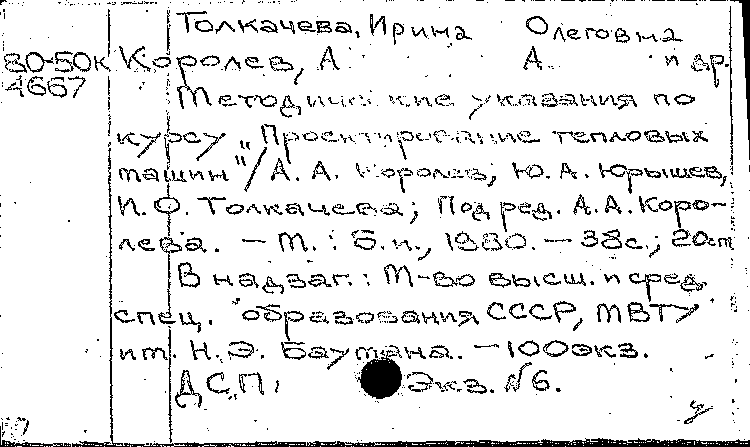 Толкачева, Ирина Олеговна
80-50к Королев, А. А. и др.
4667
Методические указания по
курсу „Проектирование тепловых
машин"/А. А. Королев, Ю. А. Юрышев,
И. О. Толкачева; Под ред. А. А. Коро-
лева. — М. : Б. и., 1980. — 38с.; 20см
В надзаг.: М-во высш. и сред.
спец. образования СССР, МВТУ
им. Н. Э. Баумана. — 100экз.
ДСП. Экз. №6.